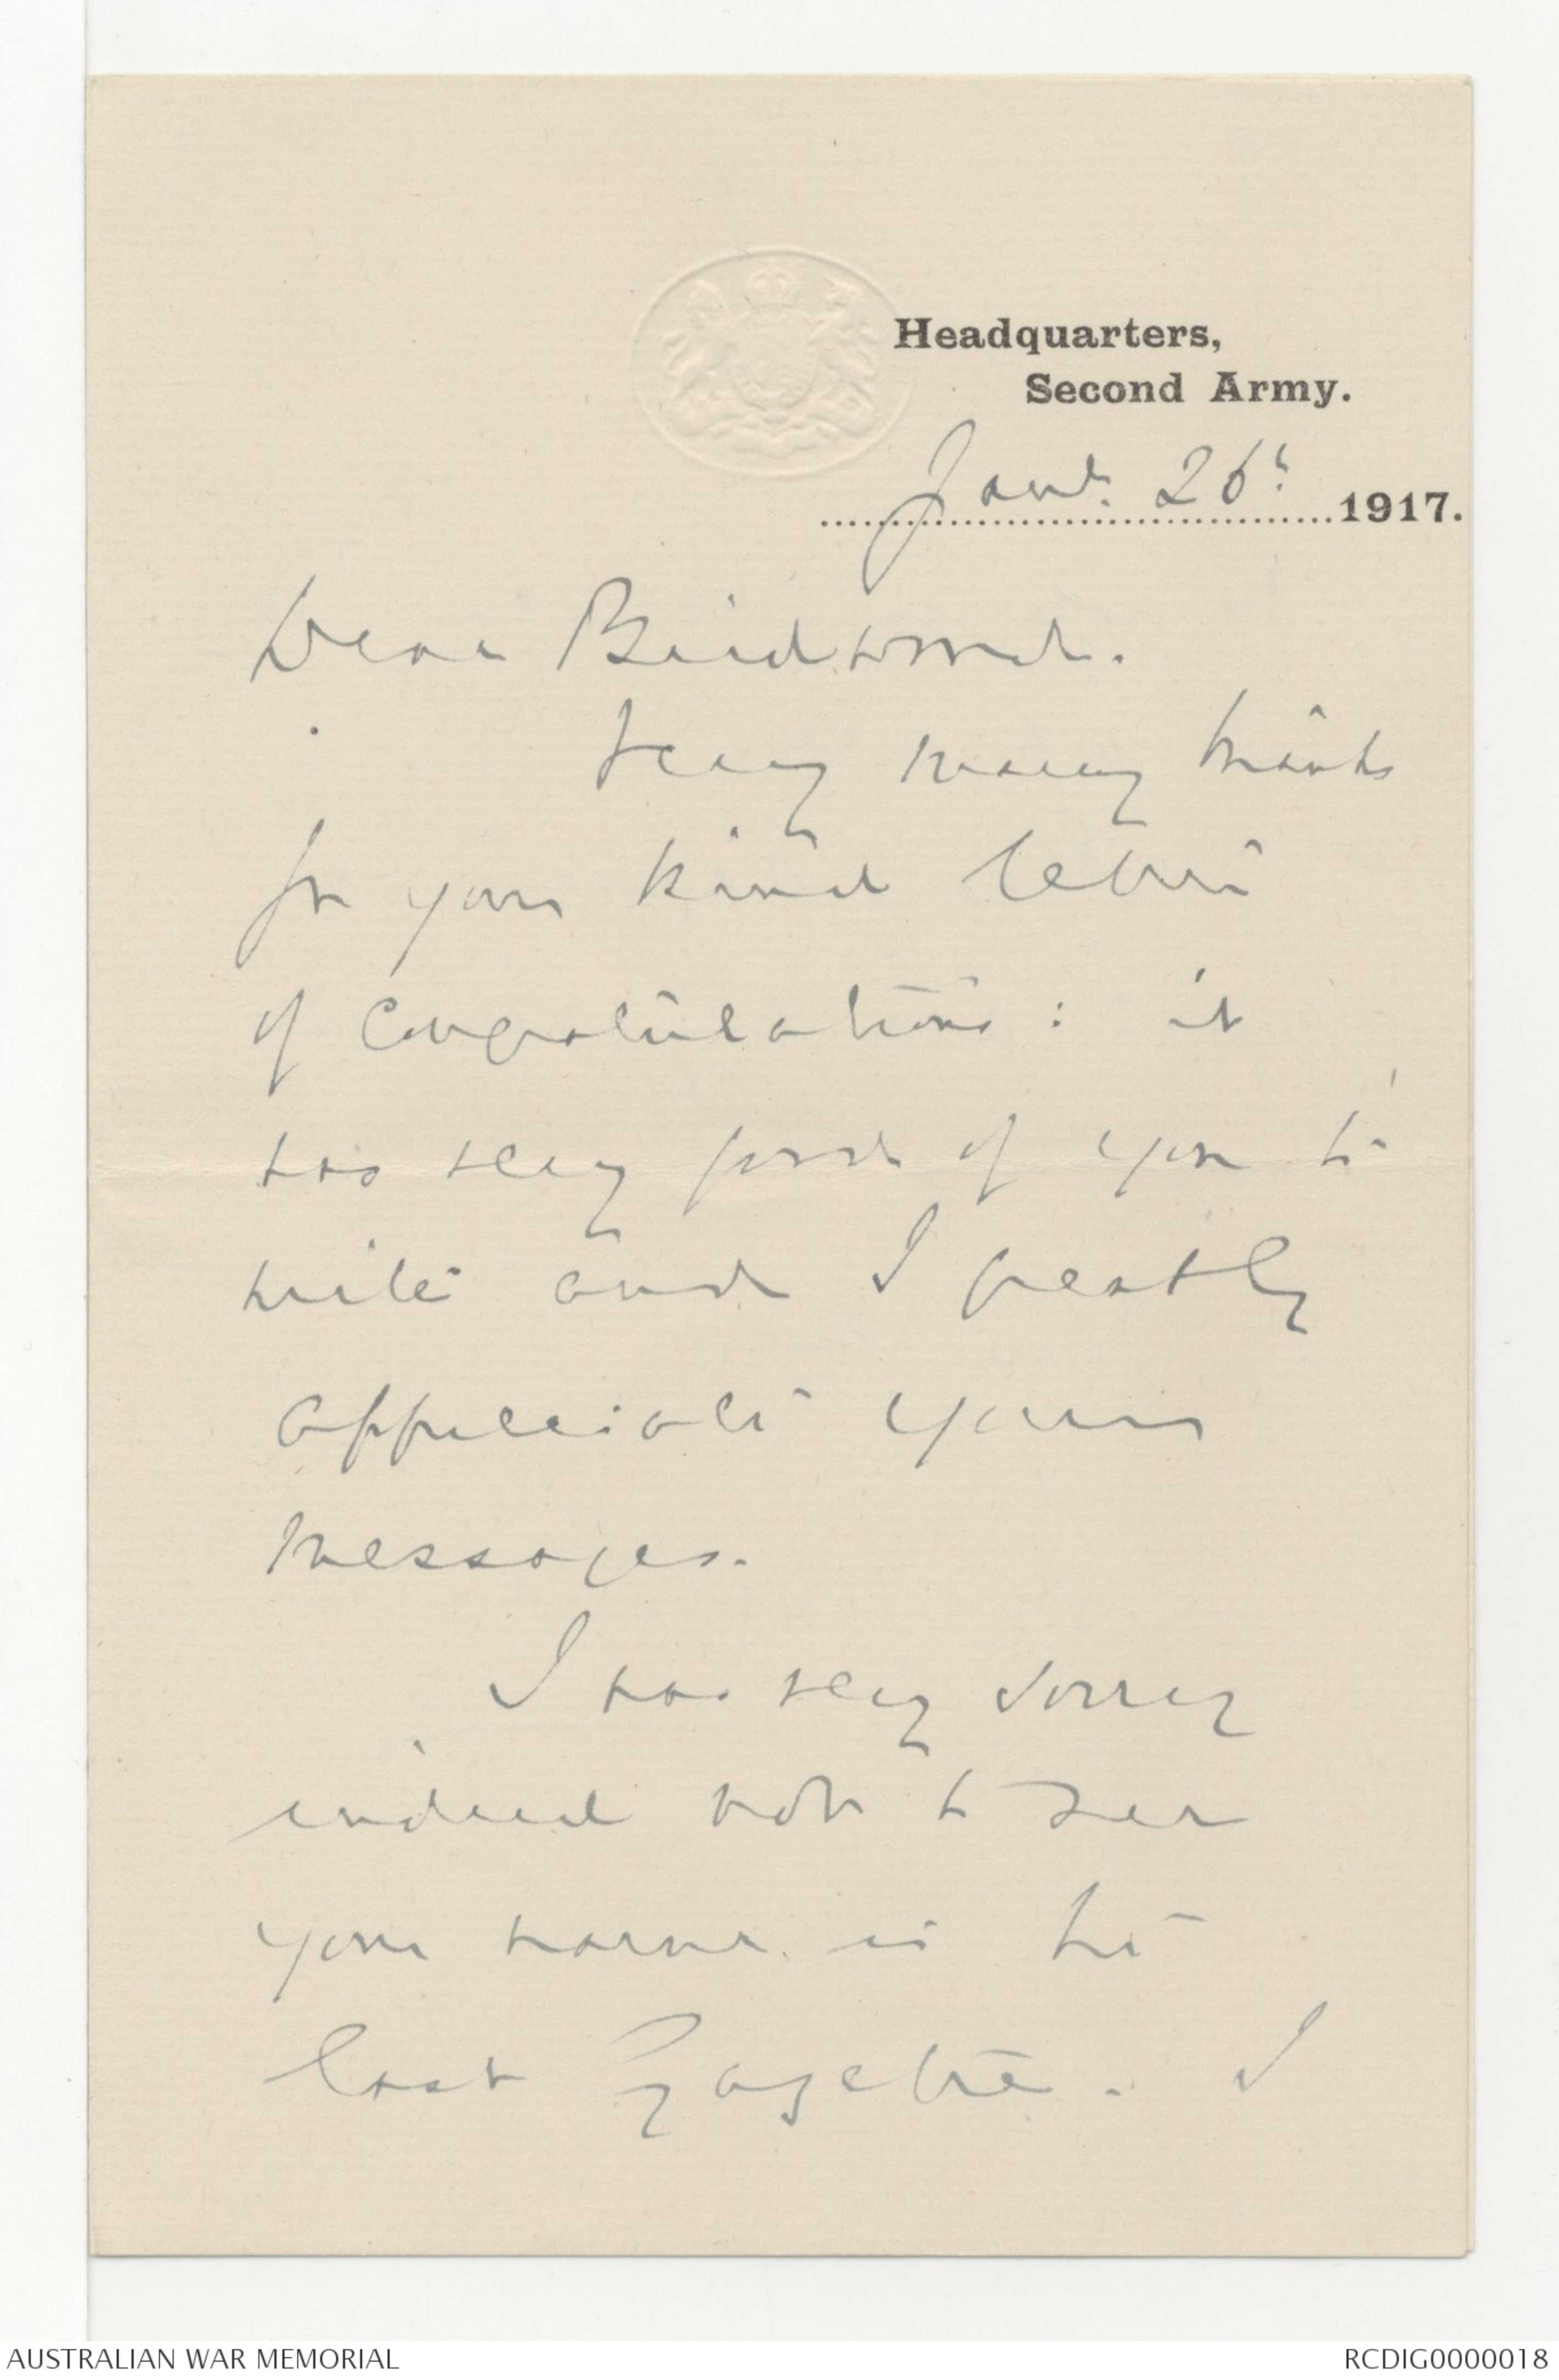 Headquarters,
Second Army.
Jany. 26th 1917.
Dear Birdwood.
Very many thanks
for your kind letter
of congratulations: it
was very good of you to
write and I greatly
appreciate your
messages.
I was very sorry
indeed not to see
your name in the
last Gazette. I
AUSTRALIAN WAR MEMORIAL
RCDIG0000018